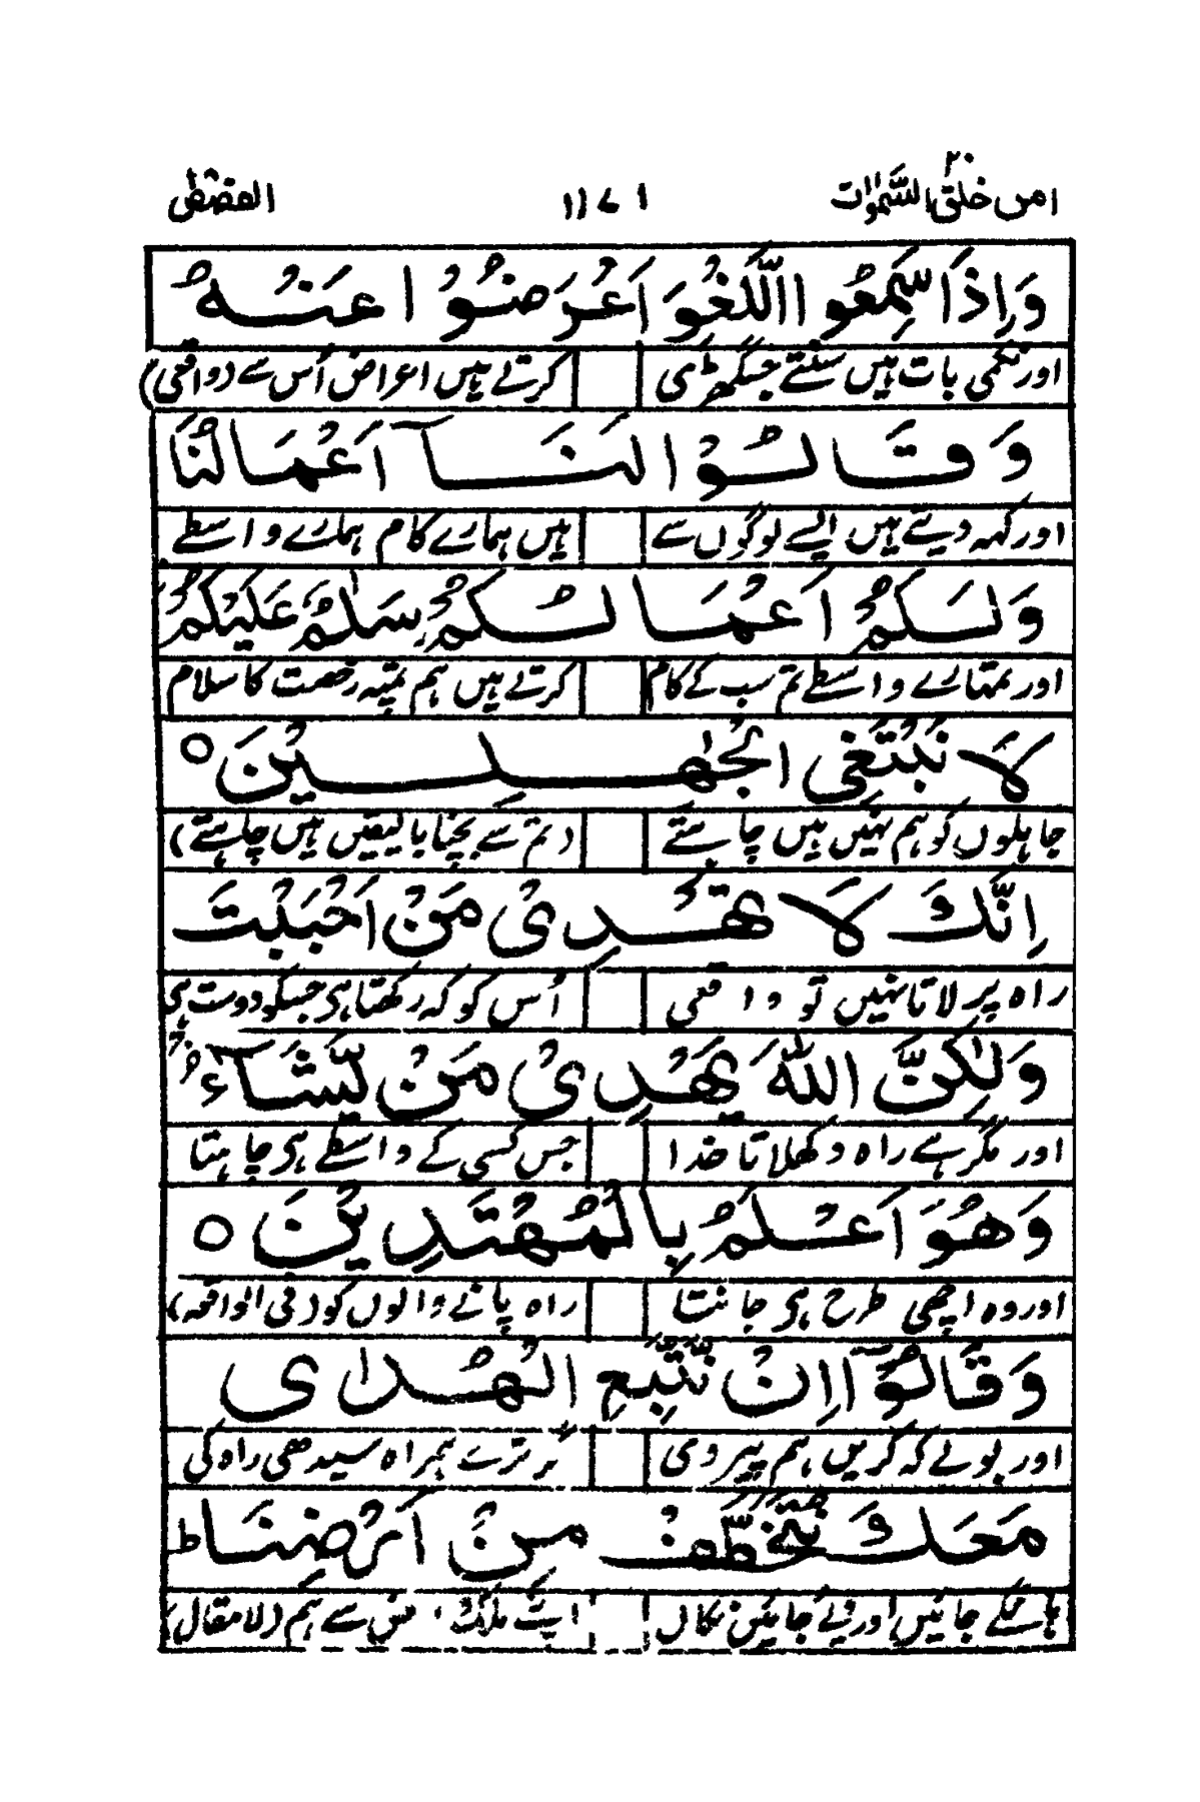 امن خلق السّمٰوٰت ۲۰ ۱۱۷۱ القصص ۲۸
وَاِذَا سَمِعُوا اللَّغْوَ اَعْرَضُوْا عَنْهُ
اور نکمی بات ہیں سنتے جس گھڑی کرتے ہیں اعراض اُس سے (واقعی)
وَقَالُوْا لَنَآ اَعْمَالُنَا
اور کہہ دیتے ہیں ایسے لوگوں سے ہیں ہمارے کام ہمارے واسطے
وَلَكُمْ اَعْمَالُكُمْ سَلٰمٌ عَلَيْكُمْ
اور تمہارے واسطے تم سب کے کام کرتے ہیں ہم تمپہ رخصت کا سلام
لَا نَبْتَغِى الْجٰهِلِيْنَ ○
جاہلوں کو ہم نہیں ہیں چاہتے (تم سے بچنا بالیقیں ہیں چاہتے)
اِنَّكَ لَا تَهْدِىْ مَنْ اَحْبَبْتَ
راہ پر لاتا نہیں تو واقعی اُس کو کہ رکھتا ہی جسکو دوست ہی
وَلٰكِنَّ اللّٰهَ يَهْدِىْ مَنْ يَّشَآءُ
اور مگر ہے راہ دکھلاتا خدا جس کسی کے واسطے ہی چاہتا
وَهُوَ اَعْلَمُ بِالْمُهْتَدِيْنَ ○
اور وہ اچھی طرح ہی جانتا راہ پانے والوں کو (فی الواقعہ)
وَقَالُوْٓا اِنْ نَّتَّبِعِ الْهُدٰى
اور بولے کہ کریں ہم پیروی گر ترے ہمراہ سیدھی راہ کی
مَعَكَ نُتَخَطَّفْ مِنْ اَرْضِنَا ط
جائیں اور جائیں نکال اپنے ملک سے ہم (لامقال)